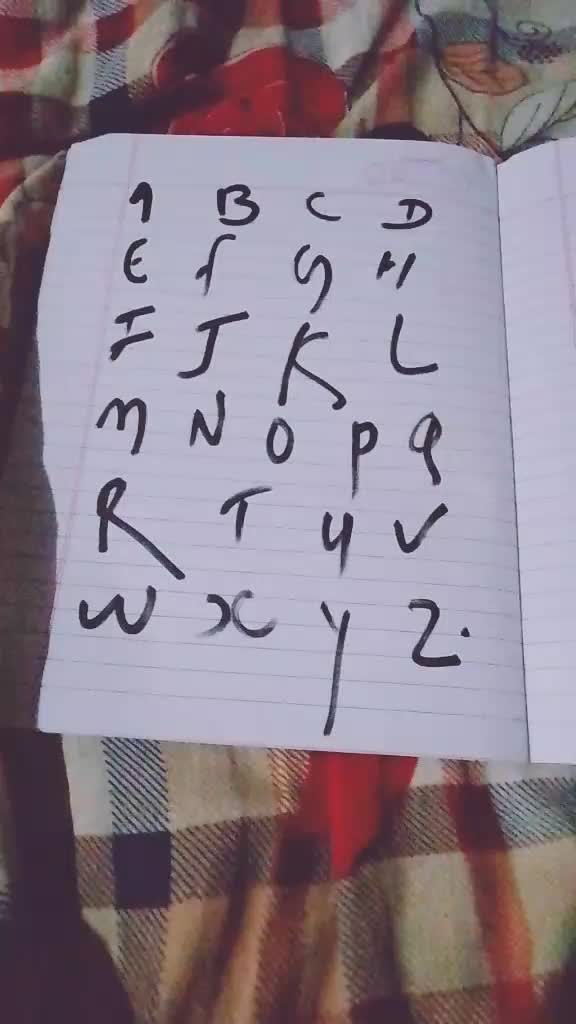 A B C D
E f G H
I J K L
M N O P Q
R T U V
W X Y Z.